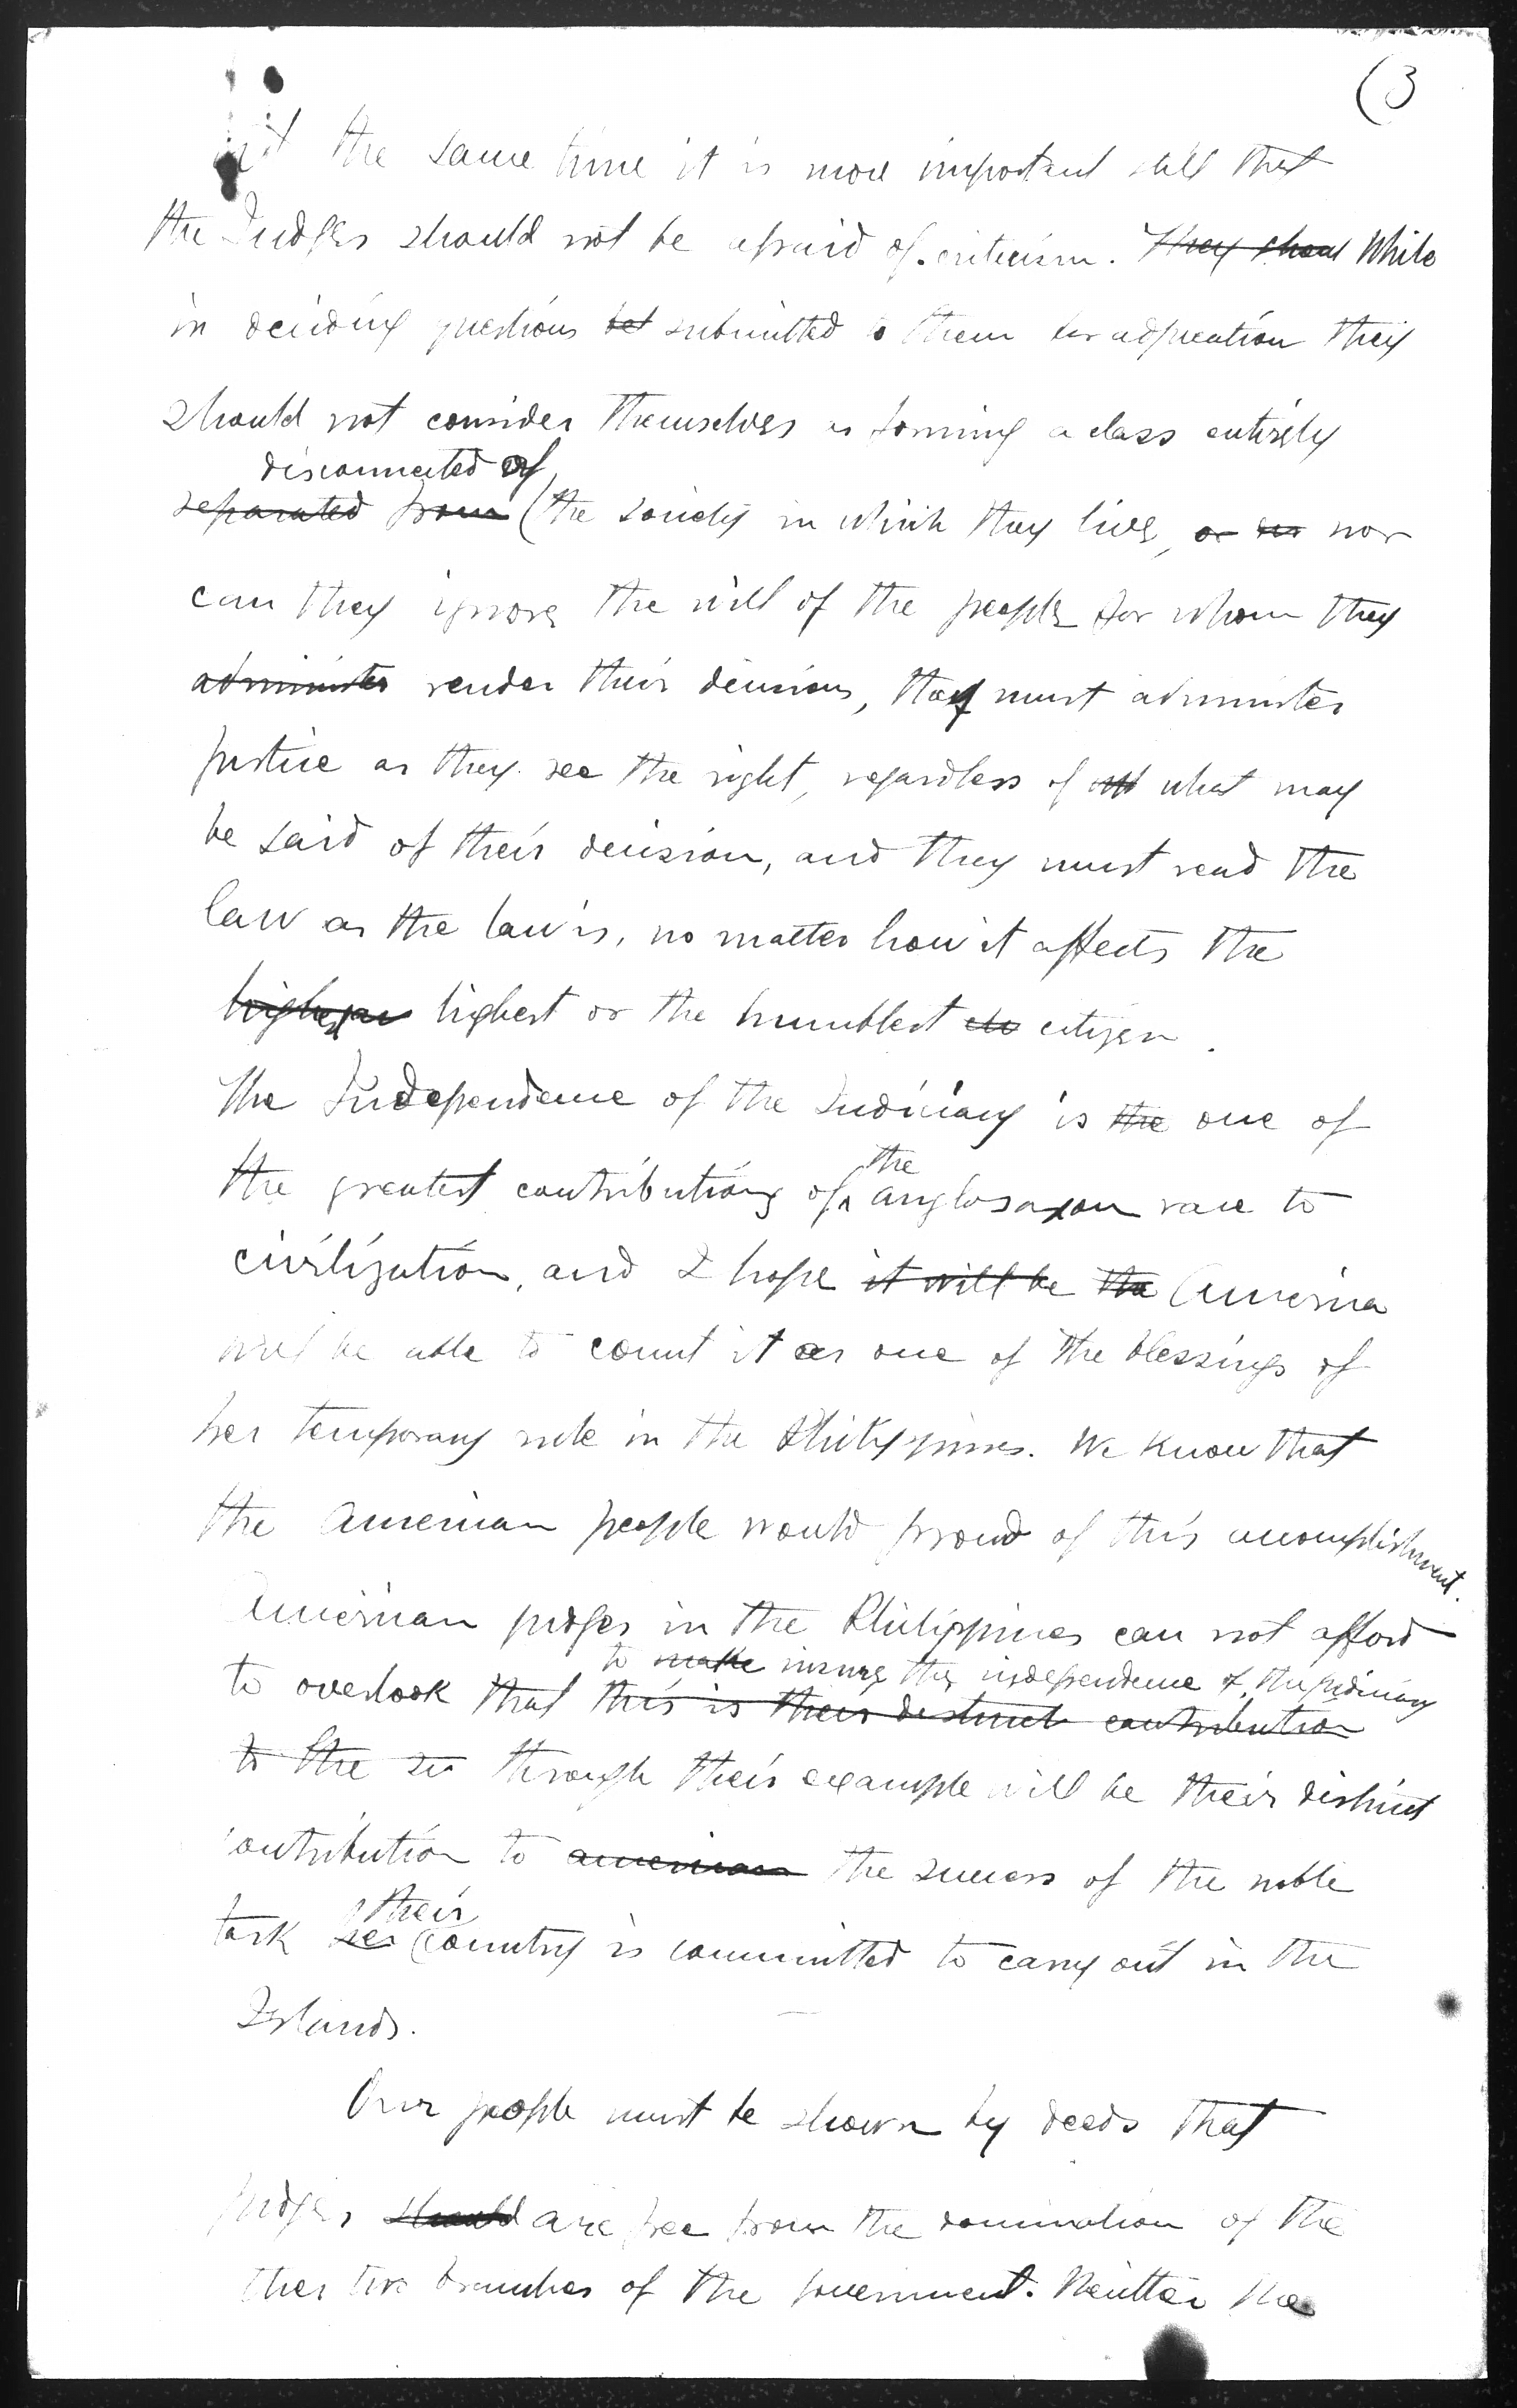 (3
at the same time it is more important still that
the Judges should not be afraid of criticism. They shoul While
in deciding questions bet submitted to them for adjucation they
should not consider themselves as forming a class entirely
disconnected of
separated from (the society in which they live, or nor
can they ignore the will of the people for whom they
administer render their decisions, they must administer
justice as they see the right, regardless of all what may
be said of their decision, and they must read the
law as the law is, no matter how it affects the
highest or the humblest citizen.
The Independence of the Judiciary is the one of
the
the greatest contributions of anglosaxon race to
civilization, and I hope it will be the America
will be able to count it as one of the blessings of
her temporary rule in the Philippines. We know that
the American people would proud of this accomplishment.
American judges in the Philippines can not afford
to make insure the independence of the judiciary
to overlook that this is their distinct contribution
to the su through their example will be their distinct
contribution to american the success of the noble
their
task her country is committed to carry out in the
Islands.
Our people must be shown by deeds that
judges should are free from the domination of the
other two branches of the government. Neither the